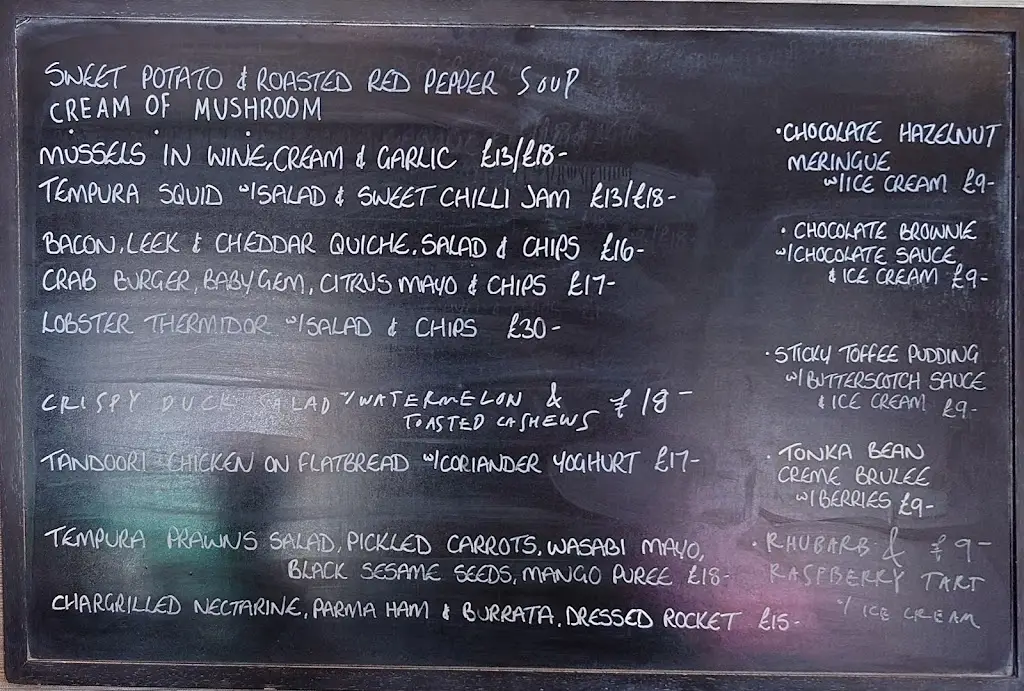 SWEET POTATO & ROASTED RED PEPPER SOUP
CREAM OF MUSHROOM
MUSSELS IN WINE, CREAM & GARLIC £13/£18-
TEMPURA SQUID w/SALAD & SWEET CHILLI JAM £13/£18-
BACON, LEEK & CHEDDAR QUICHE, SALAD & CHIPS £16-
CRAB BURGER, BABY GEM, CITRUS MAYO & CHIPS £17-
LOBSTER THERMIDOR w/SALAD & CHIPS £30-
CRISPY DUCK SALAD w/WATERMELON & £18-
TOASTED CASHEWS
TANDOORI CHICKEN ON FLATBREAD w/CORIANDER YOGHURT £17-
TEMPURA PRAWNS SALAD, PICKLED CARROTS, WASABI MAYO,
BLACK SESAME SEEDS, MANGO PUREE £18-
CHARGRILLED NECTARINE, PARMA HAM & BURRATA, DRESSED ROCKET £15-
·CHOCOLATE HAZELNUT
MERINGUE
w/ICE CREAM £9-
·CHOCOLATE BROWNIE
w/CHOCOLATE SAUCE,
& ICE CREAM £9-
·STICKY TOFFEE PUDDING
w/BUTTERSCOTCH SAUCE
& ICE CREAM £9-
·TONKA BEAN
CREME BRULEE
w/BERRIES £9-
·RHUBARB & £9-
RASPBERRY TART
w/ ICE CREAM